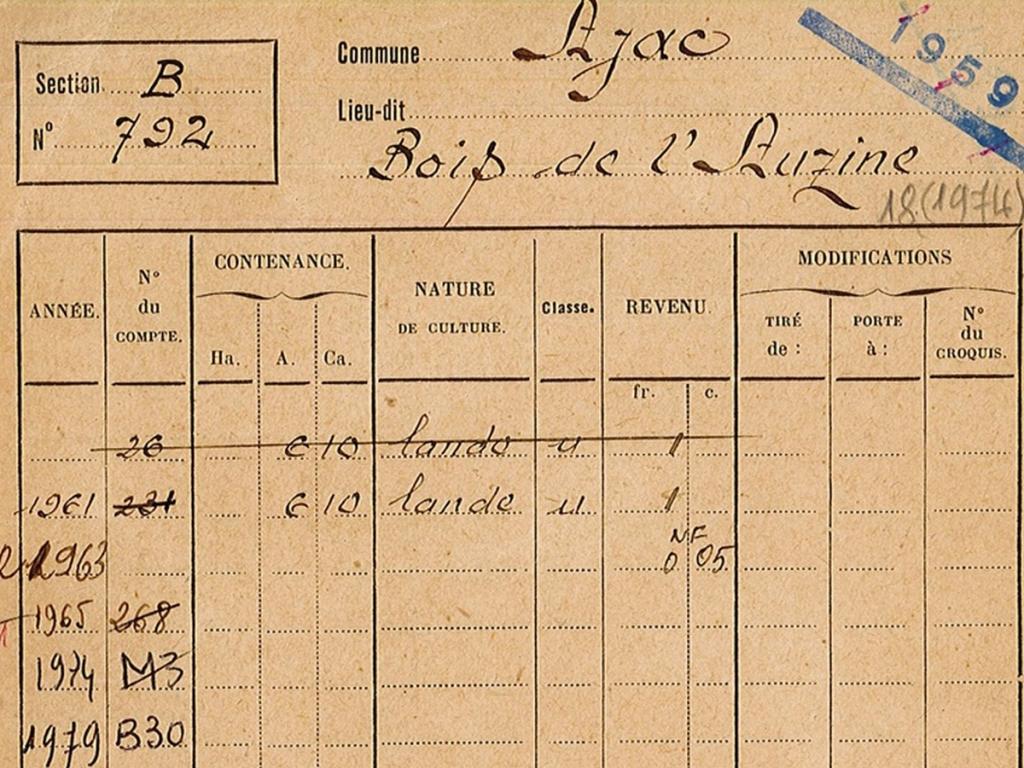 Section B
N° 792
Commune Ajac
Lieu-dit
Bois de l'Auzine
1959
18 (1974)
ANNÉE. N° du COMPTE. CONTENANCE. NATURE DE CULTURE. Classe. REVENU. MODIFICATIONS
Ha. A. Ca. TIRÉ de : PORTE à : N° du CROQUIS.
fr. c.
26 6 10 lande u 1
1961 231 6 10 lande u 1
NF
1963 0 05
1965 268
1974 M3
1979 B30